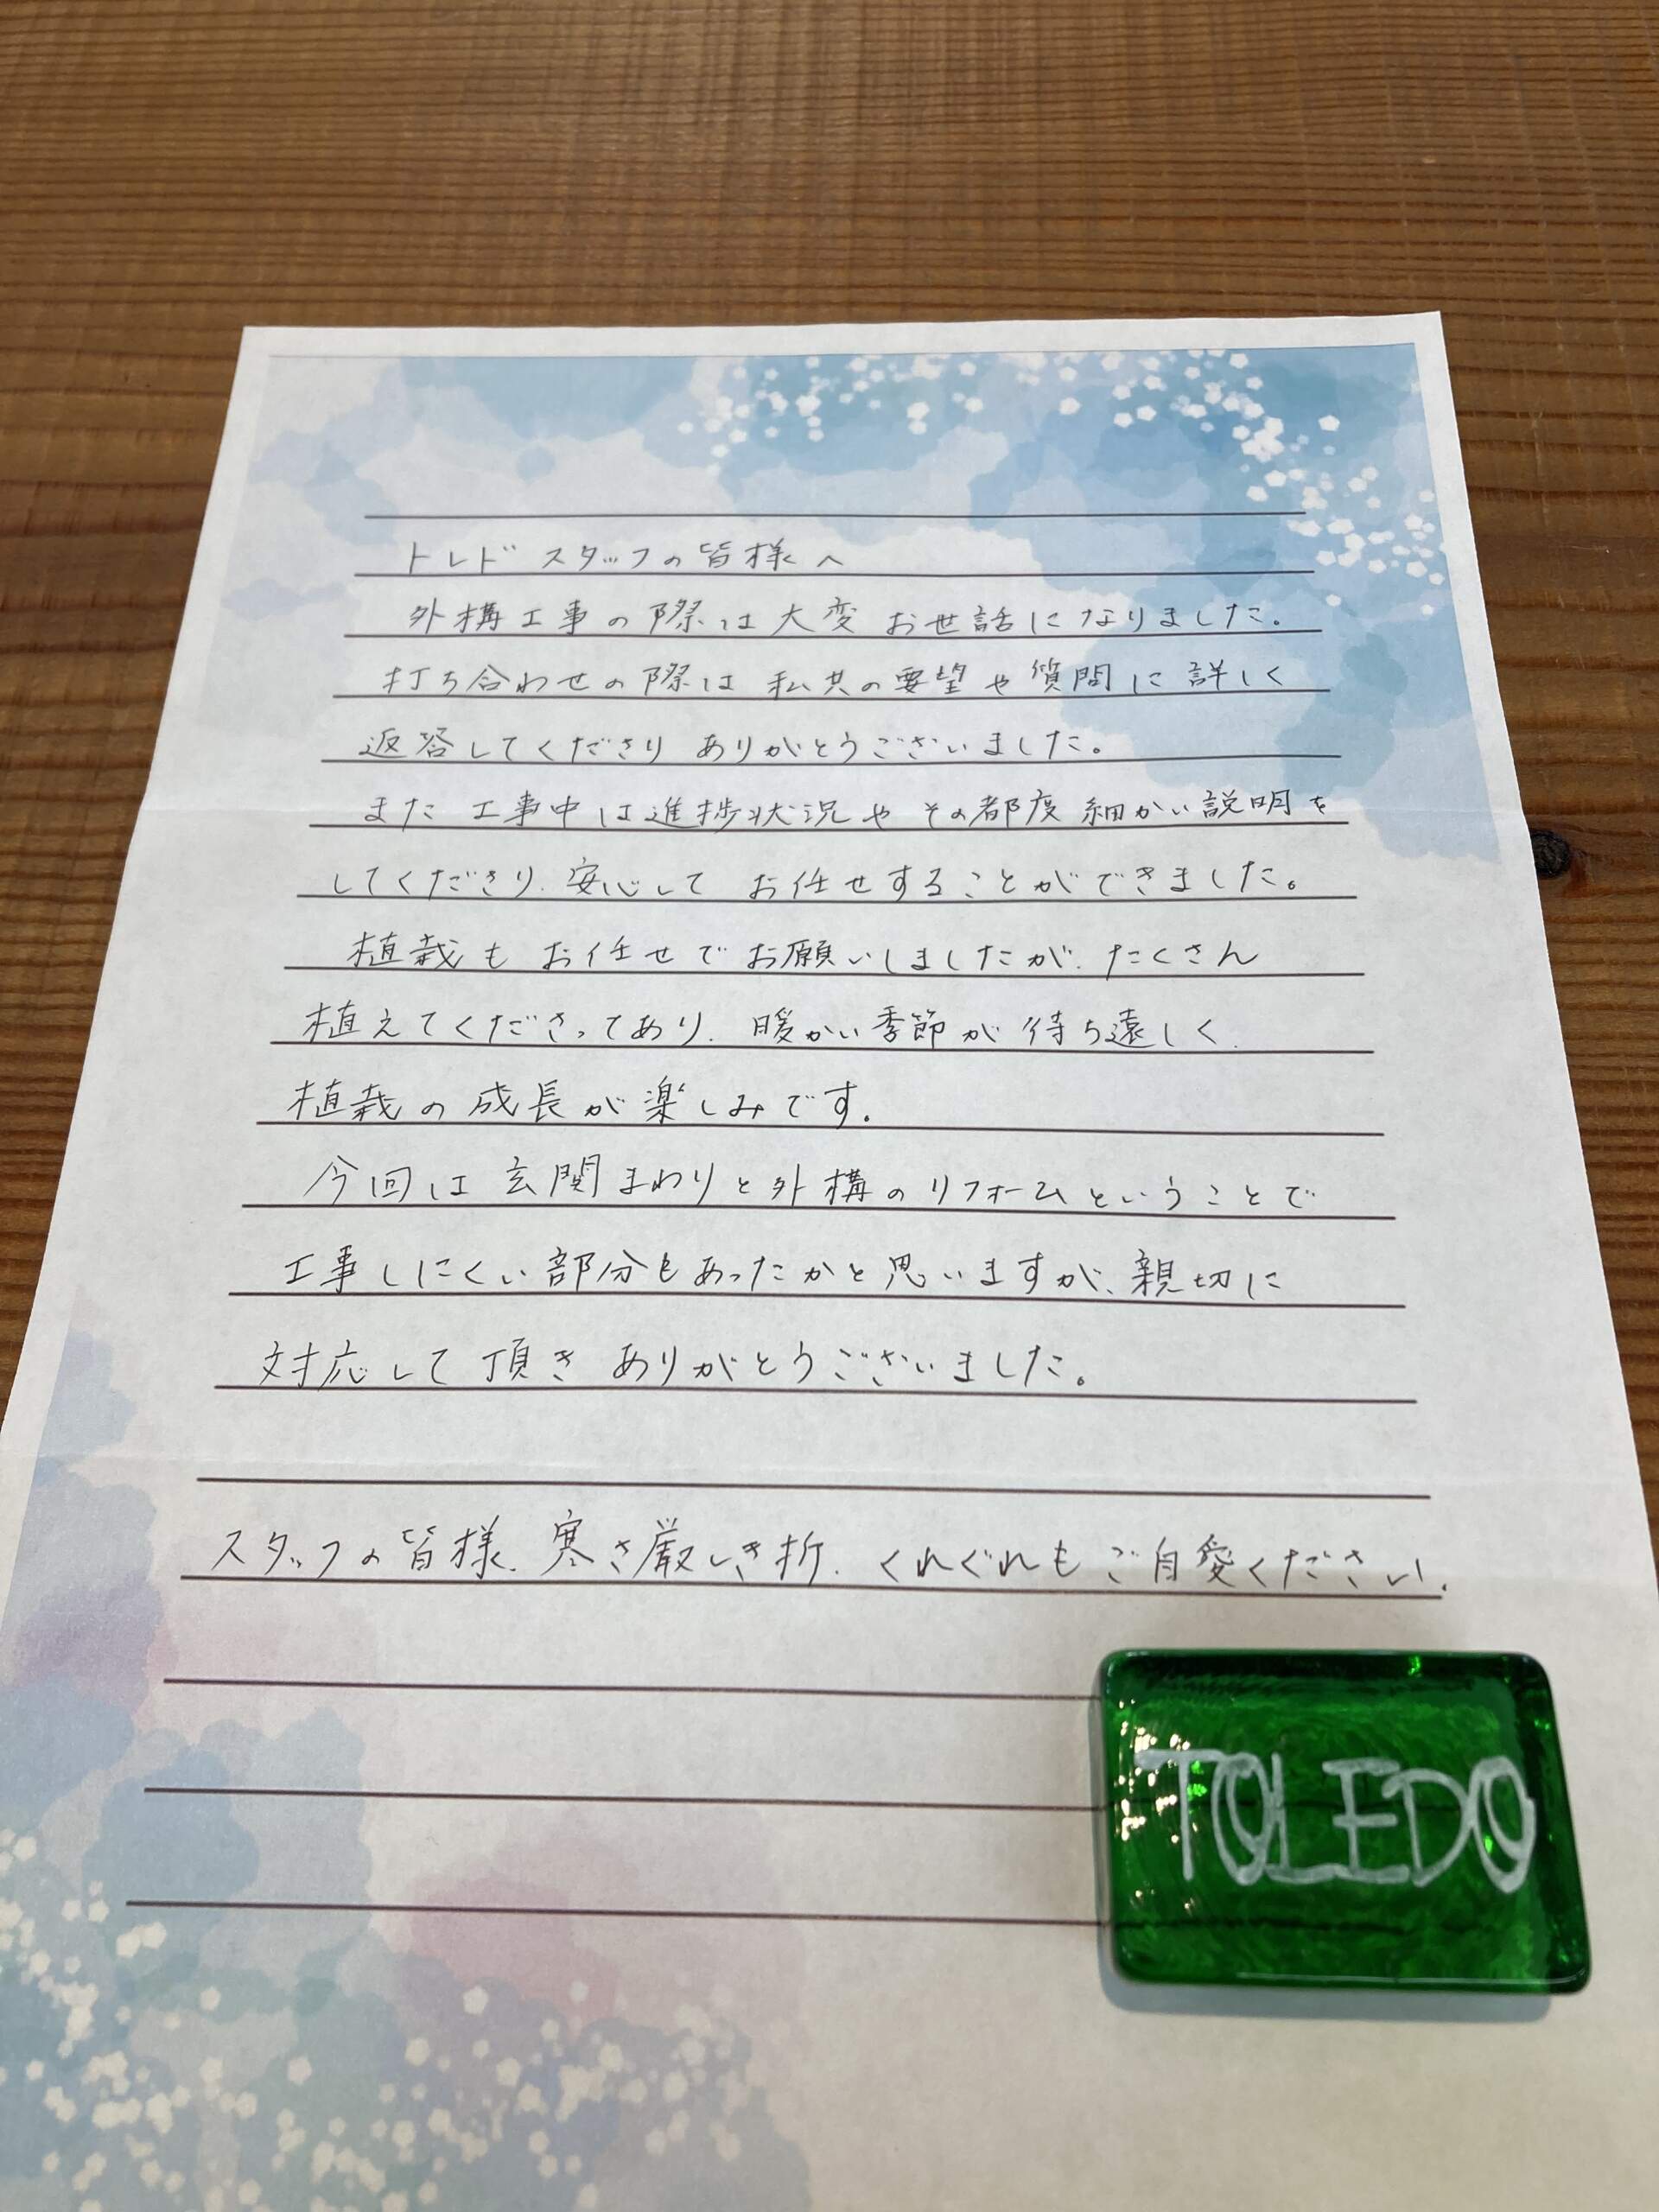 トレド スタッフの皆様へ
外構工事の際は大変お世話になりました。
打ち合わせの際は私共の要望や質問に詳しく
返答してくださりありがとうございました。
また工事中は進捗状況やその都度細かい説明を
してくださり、安心してお任せすることができました。
植栽もお任せでお願いしましたが、たくさん
植えてくださってあり、暖かい季節が待ち遠しく、
植栽の成長が楽しみです。
今回は玄関まわりと外構のリフォームということで
工事しにくい部分もあったかと思いますが、親切に
対応して頂きありがとうございました。
スタッフの皆様、寒さ厳しき折、くれぐれもご自愛ください。
TOLEDO